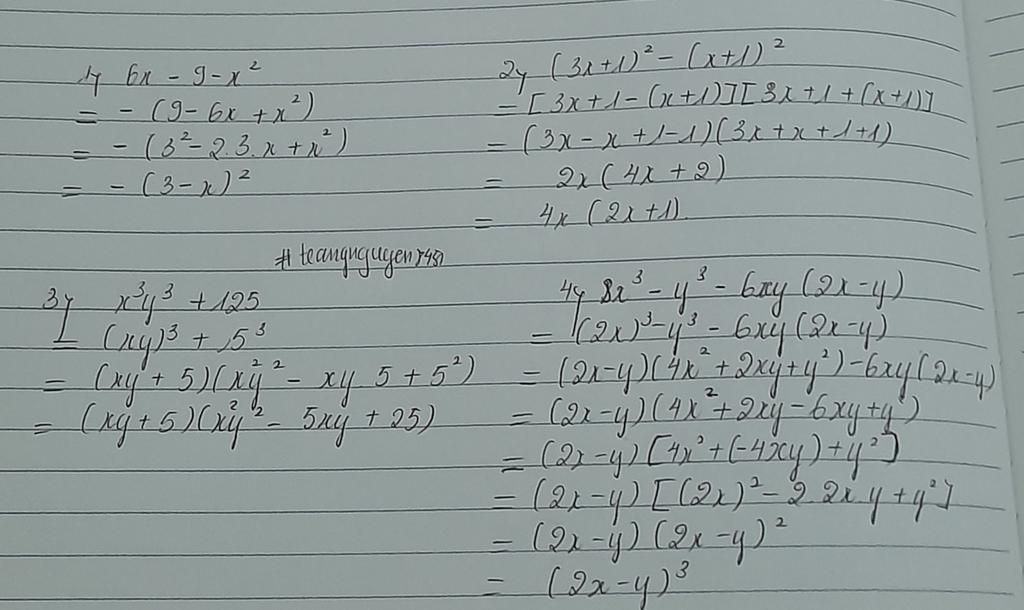 1, 6x - 9 - x²
= - (9 - 6x + x²)
= - (3² - 2.3.x + x²)
= - (3 - x)²
2, (3x+1)² - (x+1)²
= [3x+1-(x+1)][3x+1+(x+1)]
= (3x-x+1-1)(3x+x+1+1)
= 2x(4x+2)
= 4x(2x+1)
3, x³y³ + 125
= (xy)³ + 5³
= (xy+5)(x²y² - xy 5 + 5²)
= (xy+5)(x²y² - 5xy + 25)
4, 8x³ - y³ - 6xy(2x-y)
= (2x)³ - y³ - 6xy(2x-y)
= (2x-y)(4x²+2xy+y²) - 6xy(2x-y)
= (2x-y)(4x²+2xy-6xy+y²)
= (2x-y)[4x²+(-4xy)+y²]
= (2x-y)[(2x)²-2.2x.y+y²]
= (2x-y)(2x-y)²
= (2x-y)³